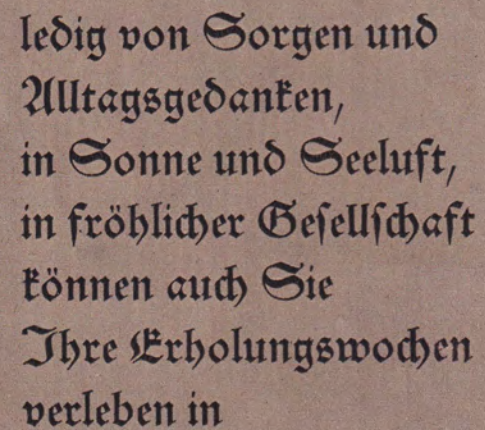 ledig von Sorgen und
Alltagsgedanken,
in Sonne und Seeluft,
in fröhlicher Geſellſchaft
können auch Sie
Ihre Erholungswochen
verleben in